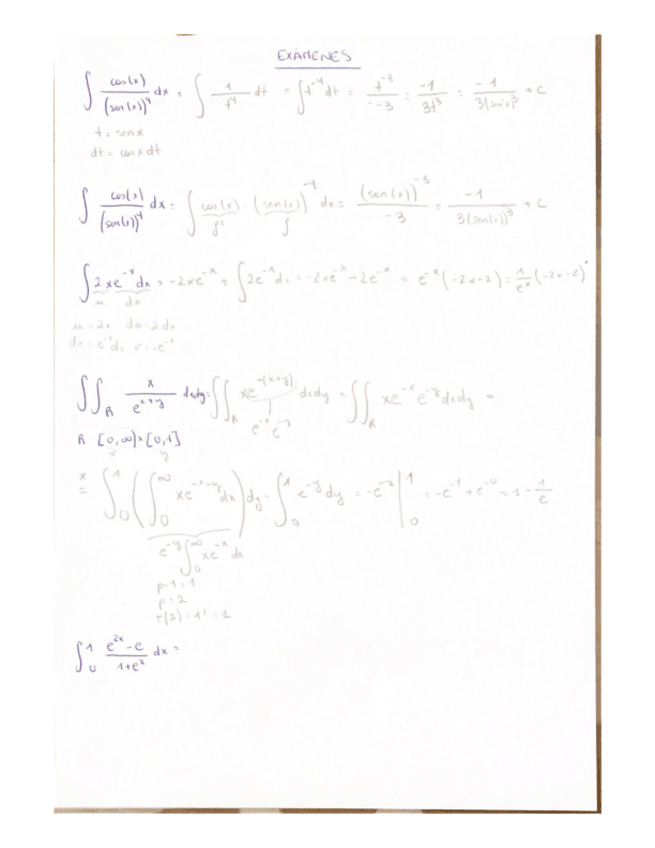 EXÁMENES
∫ cos(x)/(sen(x))⁴ dx = ∫ 1/t⁴ dt = ∫ t⁻⁴ dt = t⁻³/-3 = -1/3t³ = -1/3(sinx)³ + C
t = senx
dt = cosxdt
∫ cos(x)/(sen(x))⁴ dx = ∫ cos(x) · (sen(x))⁻⁴ dx = (sen(x))⁻³/-3 = -1/3(sen(x))³ + C
f' f
∫ 2xe⁻ˣ dx = -2xe⁻ˣ + ∫ 2e⁻ˣ dx = -2xe⁻ˣ - 2e⁻ˣ = e⁻ˣ(-2x-2) = 1/eˣ (-2x-2)
u dv
u = 2x du = 2dx
dv = e⁻ˣdx v = -e⁻ˣ
∫∫_R x/e^(x+y) dxdy = ∫∫_R xe^-(x+y) dxdy = ∫∫_R xe⁻ˣ e⁻ʸ dxdy =
e⁻ˣ e⁻ʸ
R [0,∞) × [0,1]
x y
= ∫₀¹ (∫₀^∞ xe^(-x-y) dx) dy = ∫₀¹ e⁻ʸ dy = -e⁻ʸ |₀¹ = -e⁻¹ + e⁻⁰ = 1 - 1/e
e⁻ʸ ∫₀^∞ xe⁻ˣ dx
p-1=1
p=2
Γ(2) = 1! = 1
∫₀¹ (e²ˣ - e)/(1+eˣ) dx =